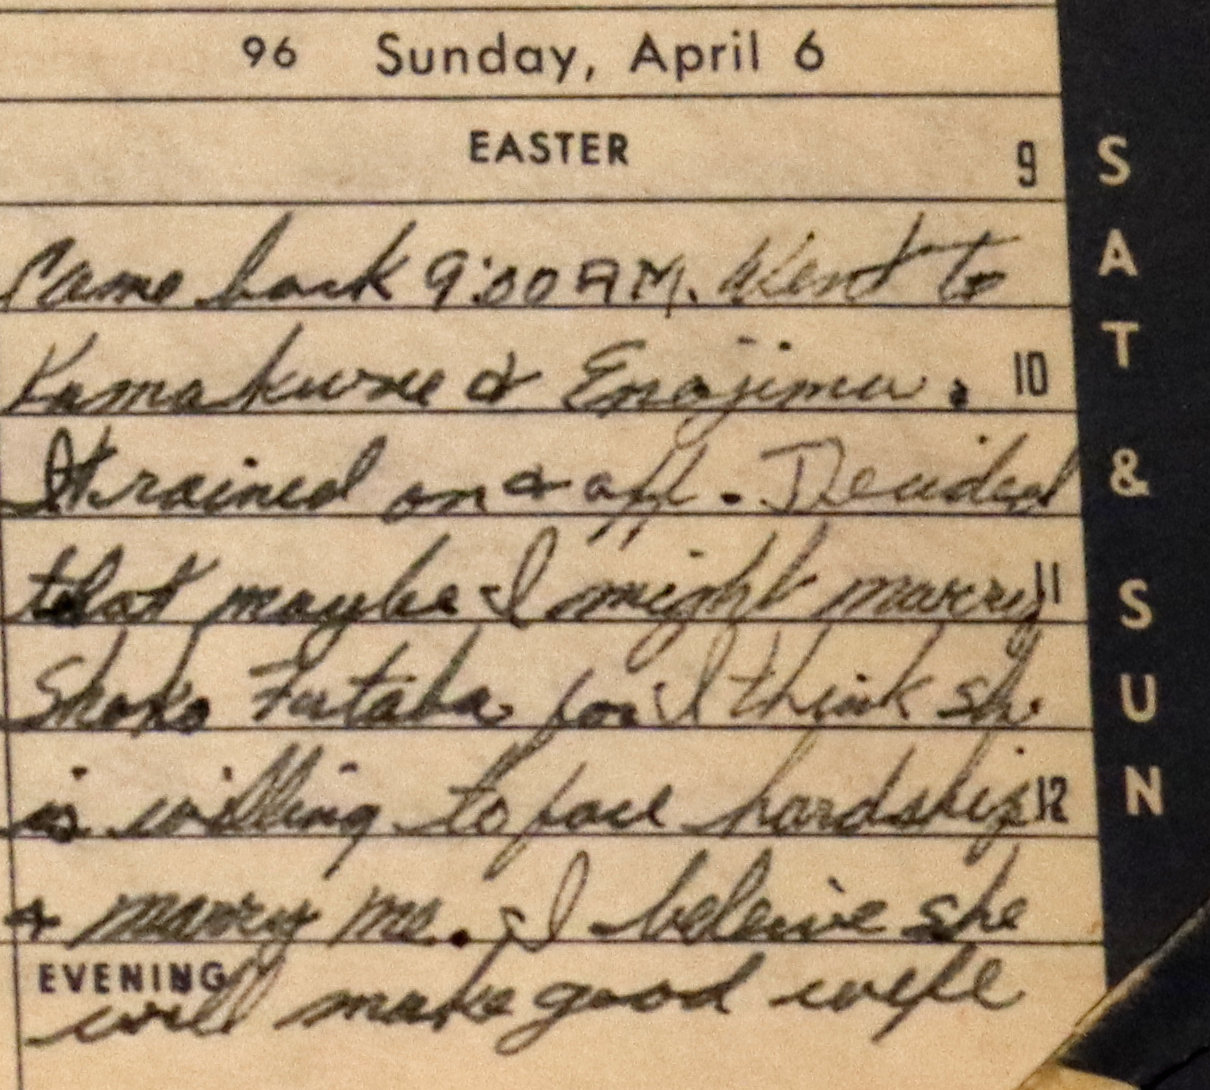 96 Sunday, April 6
EASTER
9
Came back 9:00 AM. Went to
Kamakura & Enojima.
10
It rained on & off. Decided
that maybe I might marry
11
Shoko Futaba for I think she
is willing to face hardship
12
& marry me. I beleive she
EVENING
will make good wife
SAT & SUN